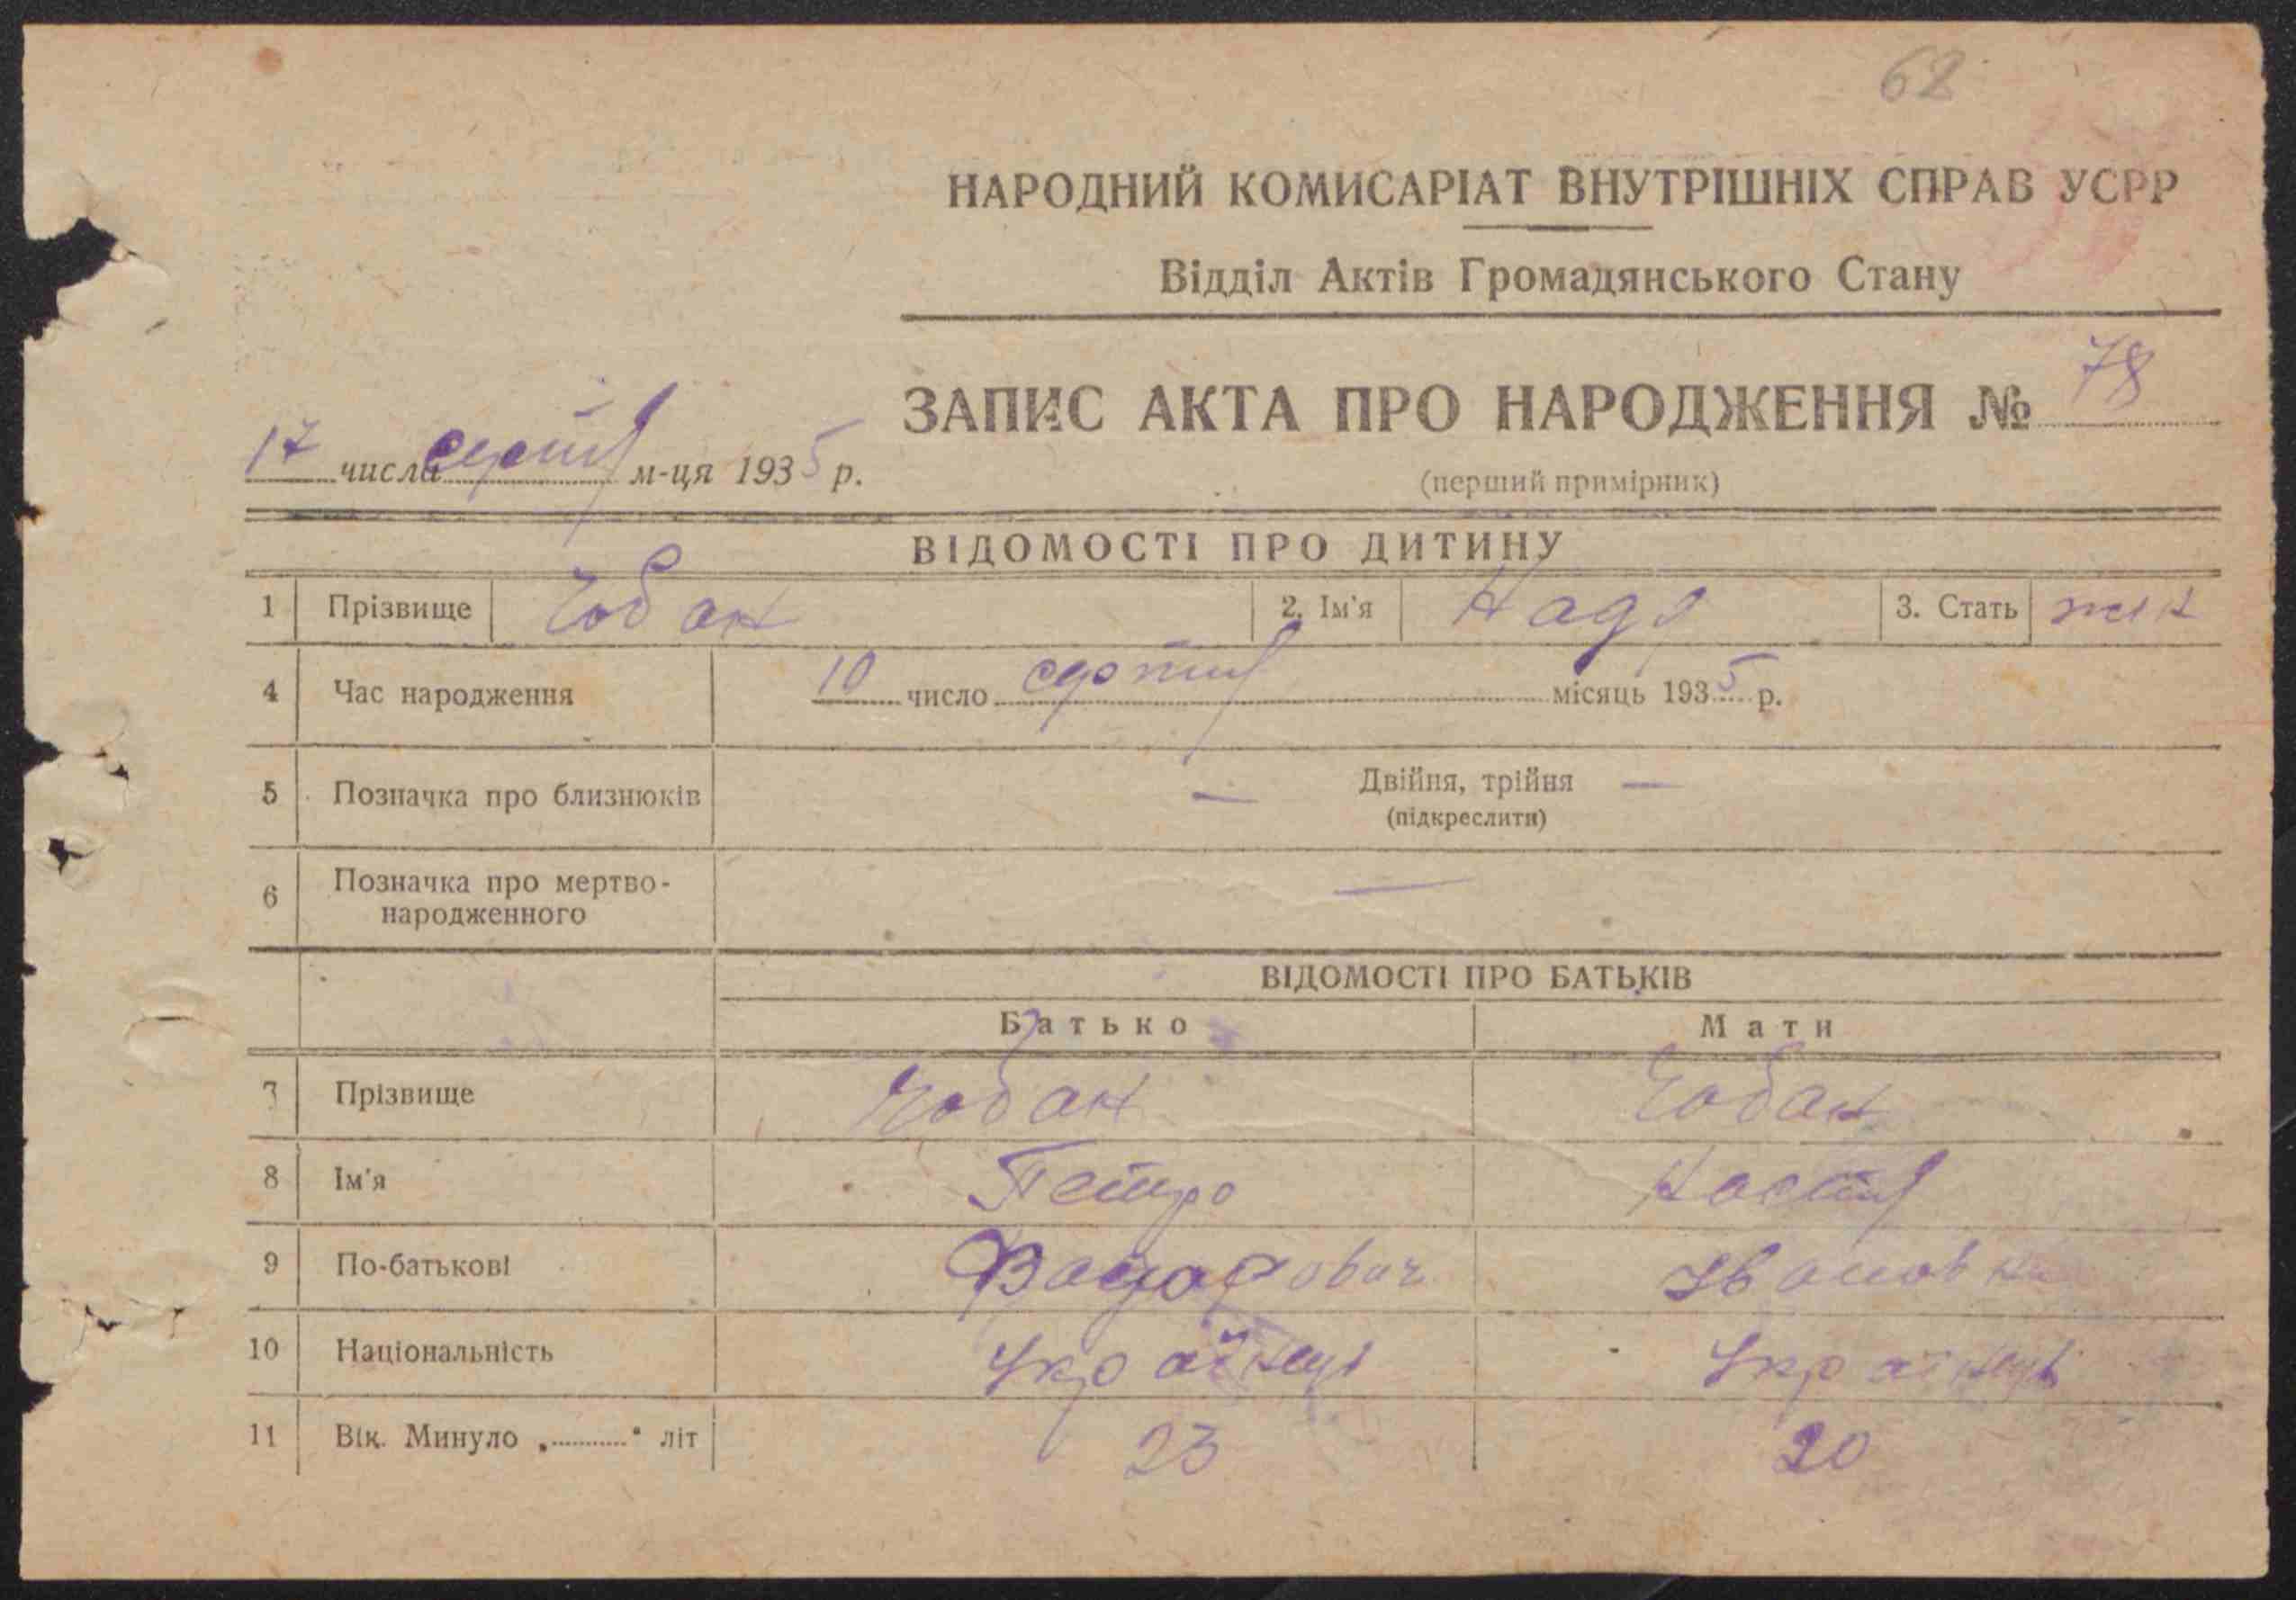 62
НАРОДНИЙ КОМИСАРІАТ ВНУТРІШНІХ СПРАВ УСРР
Відділ Актів Громадянського Стану
ЗАПИС АКТА ПРО НАРОДЖЕННЯ № 78
17 числа м-ця 1935 р.
(перший примірник)
ВІДОМОСТІ ПРО ДИТИНУ
1 Прізвище Чобан 2. Ім'я Надя 3. Стать жен
4 Час народження 10 число місяць 1935 р.
5 Позначка про близнюків — Двійня, трійня —
(підкреслити)
6 Позначка про мертво-
народженного —
ВІДОМОСТІ ПРО БАТЬКІВ
Батько Мати
7 Прізвище Чобан Чобан
8 Ім'я Петро Настя
9 По-батькові Івановна
10 Національність
11 Вік. Минуло „..........“ літ 23 20